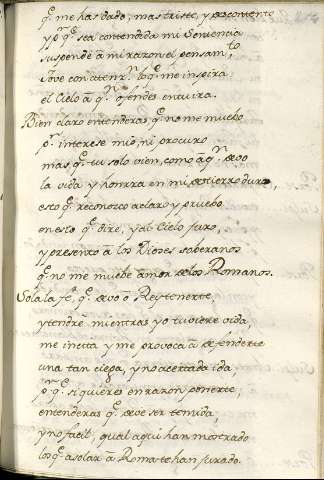 q.^e me has dado, mas triste, y descontento
y p.^r q.^e sea contentada mi Sentencia
suspende à mi razon el pensam.^to
i oye con atenz.^n lo q.^e me inspira
el Cielo â q.^n ofendes en tu ira.
Bien claro entenderas q.^e no me mucho
p.^r interese mio, ni procuro
mas q.^e tu solo vien, como â q.^n devo
la vida y honrra en mi destierro duro,
esto q.^e reconozco aclaro y pruebo
en esto q.^e diré, y al Cielo juro,
y presento â los Dioses soberanos
q.^e no me muebe âmor de los Romanos.
Sola la fe, q.^e devo ô Rey tenerte,
y tendré mientras yo tuviere vida,
me incita y me provoca â defenderte
una tan ciega, y no acertada ida,
p.^r q.^e si quieres en razon ponerte,
entenderas q.^e deve ser temida,
y no facil, qual aqui han mostrado
los q.^e asolar â Roma te han jurado.